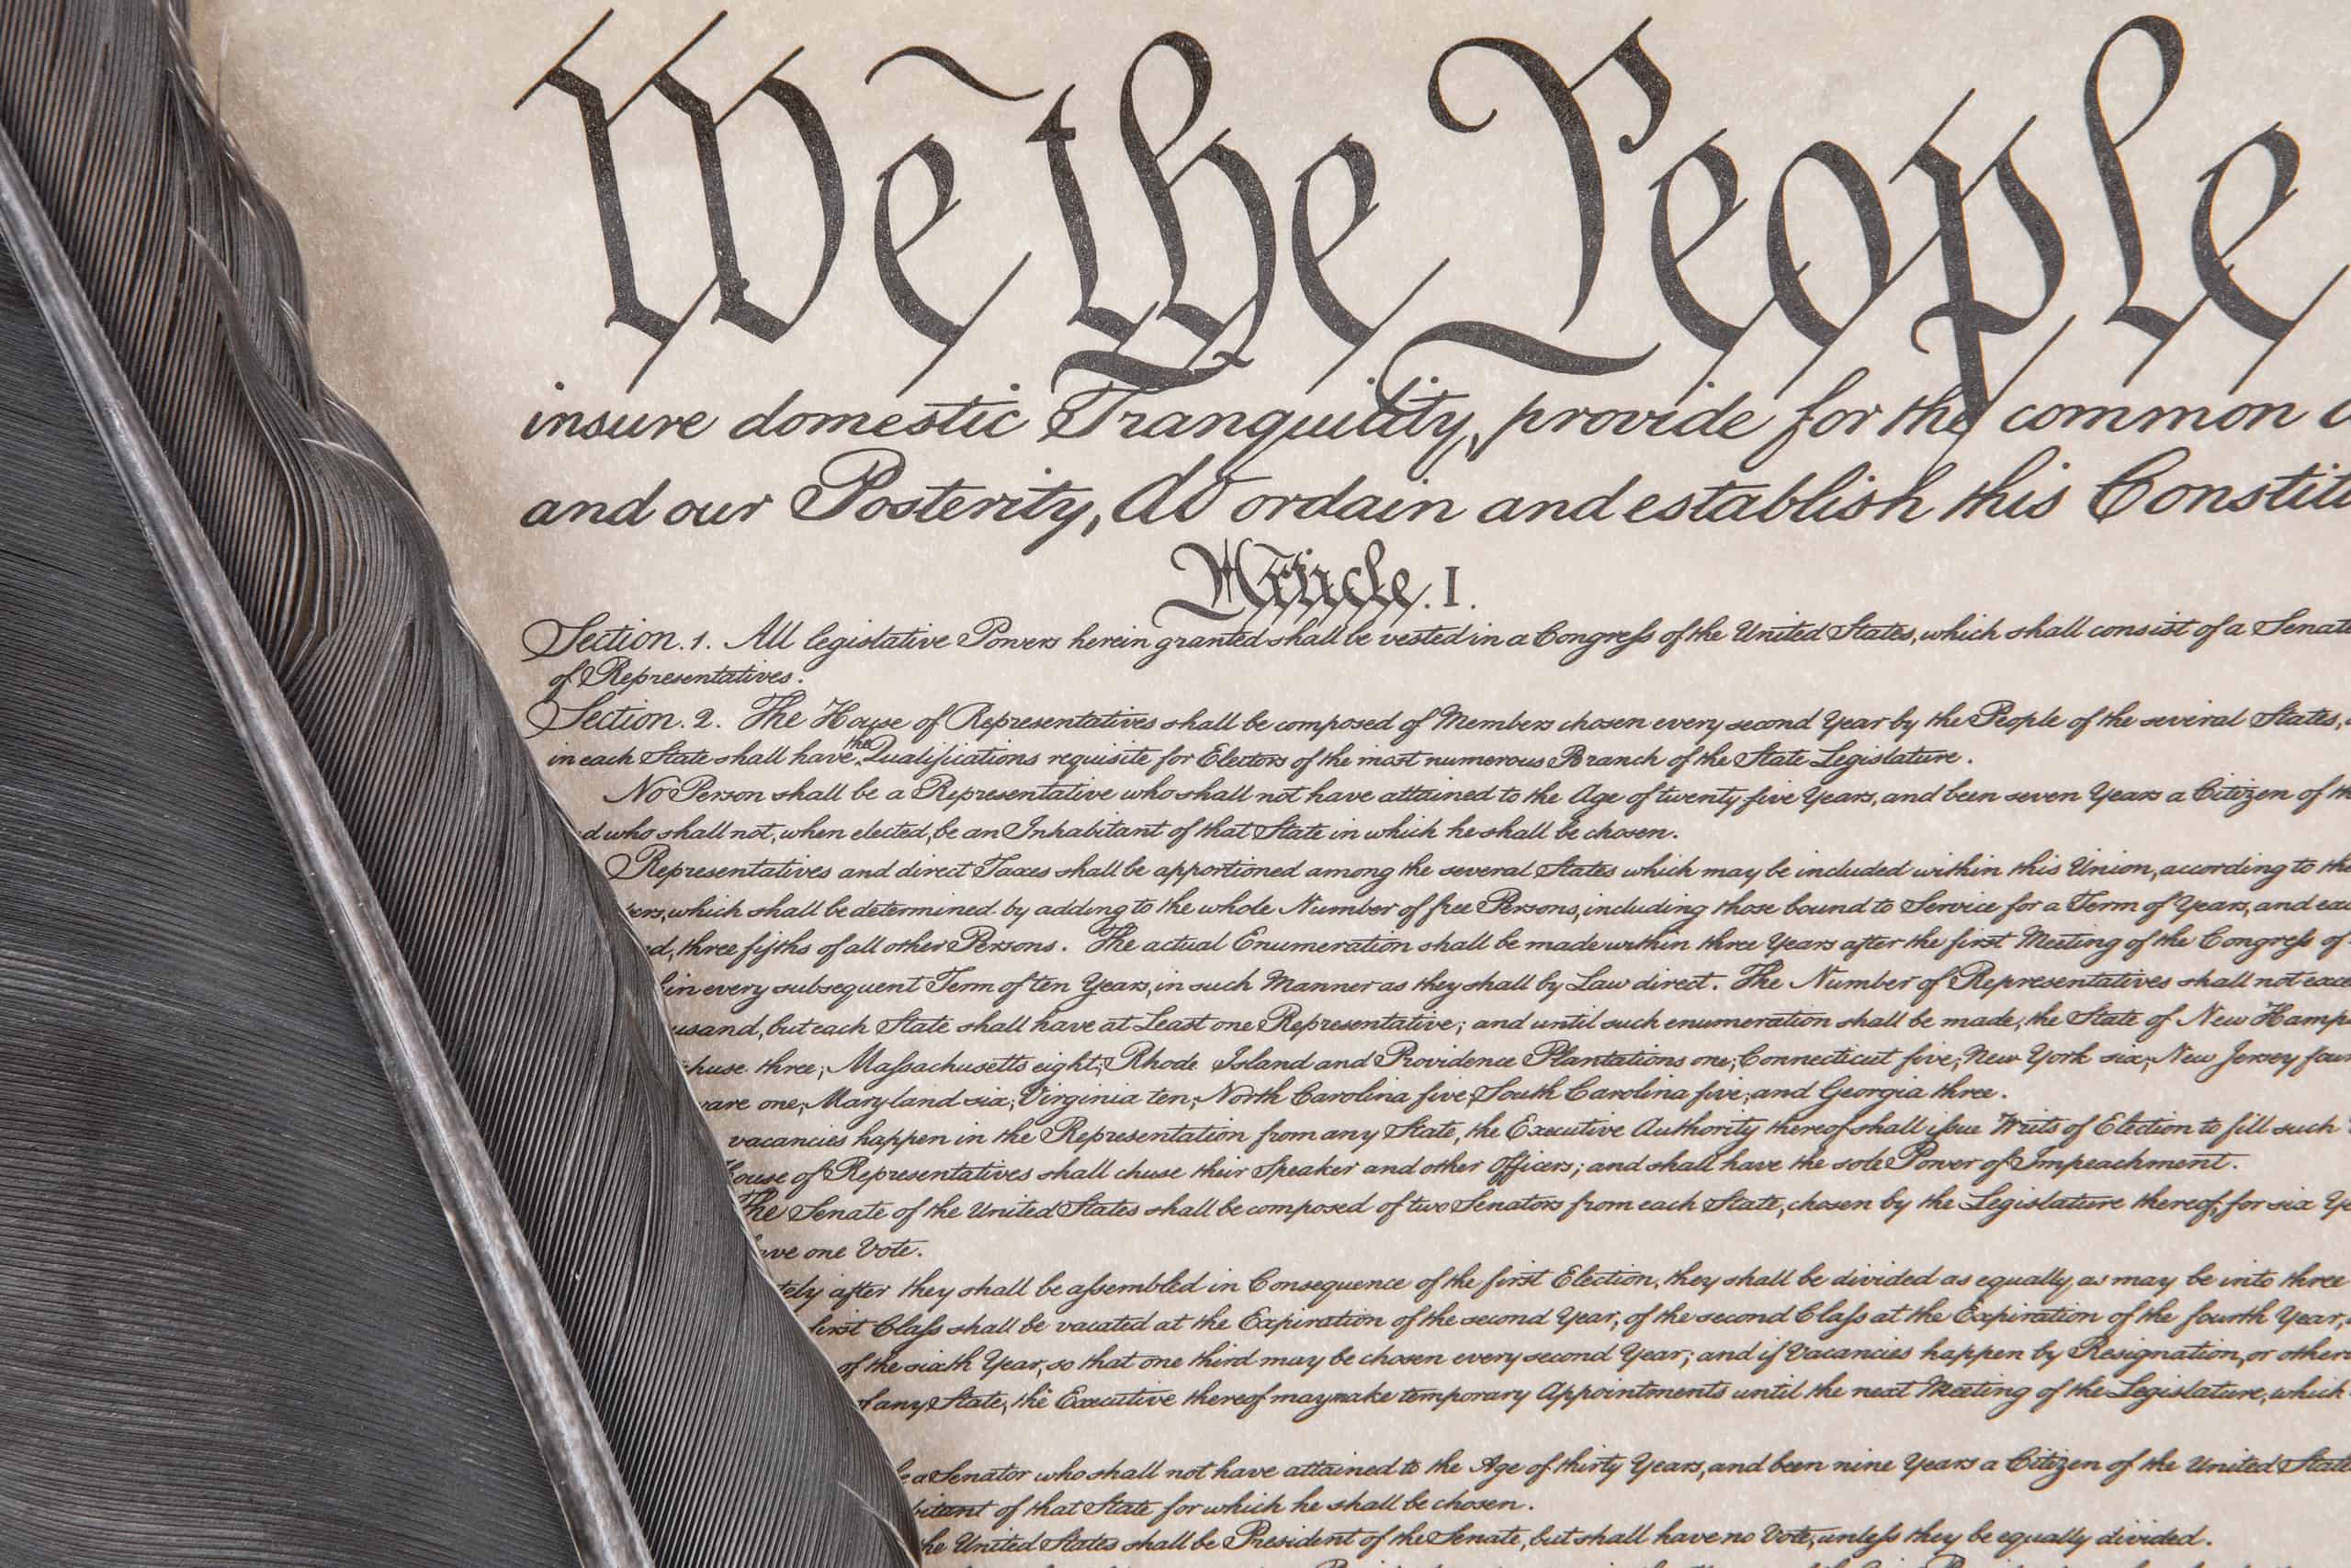 We the People
insure domestic Tranquility, provide for the common
and our Posterity, do ordain and establish this Constitu
Article. I.
Section. 1. All legislative Powers herein granted shall be vested in a Congress of the United States, which shall consist of a Senate
of Representatives.
Section. 2. The House of Representatives shall be composed of Members chosen every second Year by the People of the several States,
in each State shall have the Qualifications requisite for Electors of the most numerous Branch of the State Legislature.
No Person shall be a Representative who shall not have attained to the Age of twenty five Years, and been seven Years a Citizen of the
d who shall not, when elected, be an Inhabitant of that State in which he shall be chosen.
Representatives and direct Taxes shall be apportioned among the several States which may be included within this Union, according to the
bers, which shall be determined by adding to the whole Number of free Persons, including those bound to Service for a Term of Years, and exc
d, three fifths of all other Persons. The actual Enumeration shall be made within three Years after the first Meeting of the Congress of
in every subsequent Term of ten Years, in such Manner as they shall by Law direct. The Number of Representatives shall not exce
usand, but each State shall have at Least one Representative; and until such enumeration shall be made, the State of New Hamp
huse three, Massachusetts eight, Rhode Island and Providence Plantations one, Connecticut five, New York six, New Jersey four
ware one, Maryland six, Virginia ten, North Carolina five, South Carolina five, and Georgia three.
vacancies happen in the Representation from any State, the Executive Authority thereof shall issue Writs of Election to fill such
House of Representatives shall chuse their Speaker and other Officers; and shall have the sole Power of Impeachment.
The Senate of the United States shall be composed of two Senators from each State, chosen by the Legislature thereof, for six Ye
ave one Vote.
tely after they shall be assembled in Consequence of the first Election, they shall be divided as equally as may be into three
first Class shall be vacated at the Expiration of the second Year, of the second Class at the Expiration of the fourth Year,
of the sixth Year, so that one third may be chosen every second Year; and if Vacancies happen by Resignation, or other
of any State, the Executive thereof may make temporary Appointments until the next Meeting of the Legislature, which
be a Senator who shall not have attained to the Age of thirty Years, and been nine Years a Citizen of the United State
bitant of that State for which he shall be chosen.
he United States shall be President of the Senate, but shall have no Vote, unless they be equally divided.